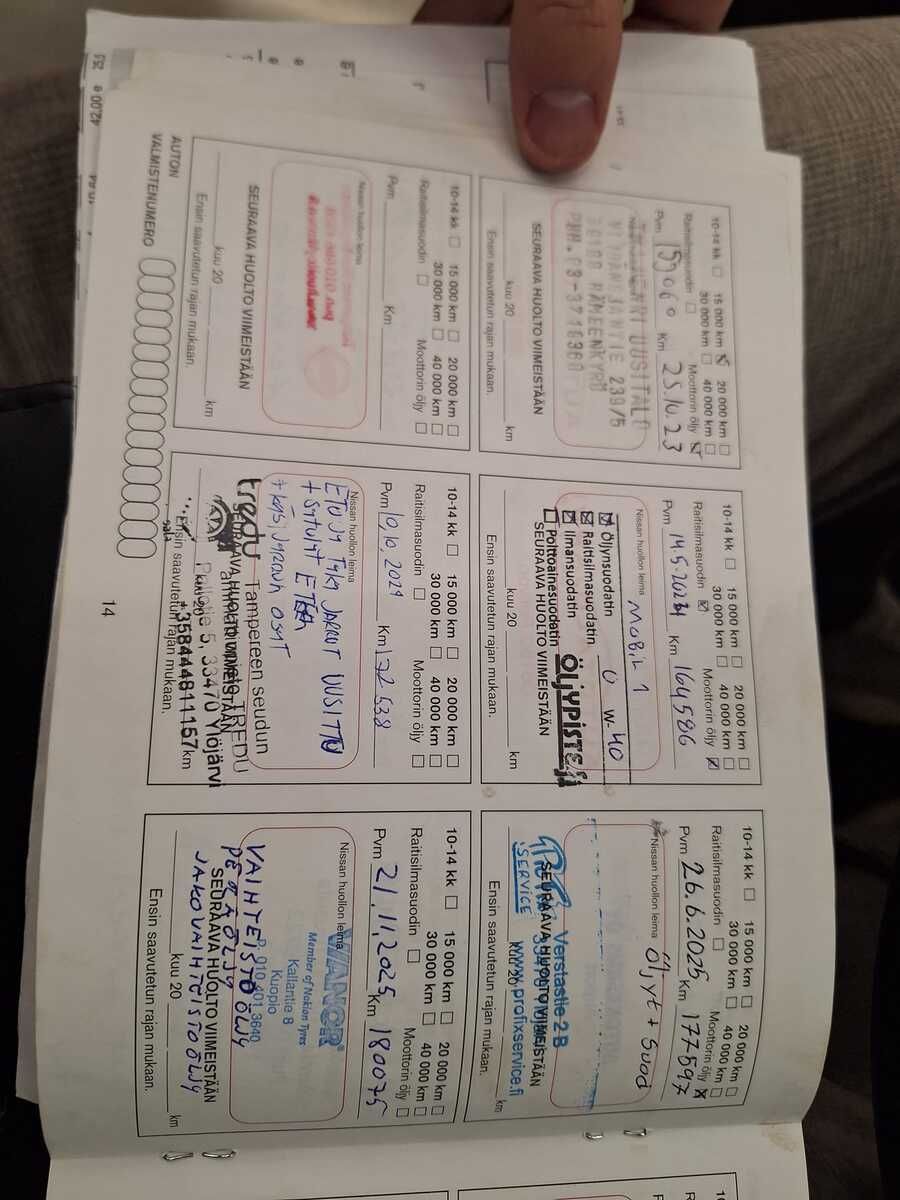 10-14 kk 15 000 km 20 000 km
30 000 km 40 000 km
Raitisilmasuodin Moottorin öljy
Pvm 159060 Km 25.10.23
UUSITALO
239/5
HÄMEENKYRÖ
PUH. 03-3716360
SEURAAVA HUOLTO VIIMEISTÄÄN
kuu 20 km
Ensin saavutetun rajan mukaan.
10-14 kk 15 000 km 20 000 km
30 000 km 40 000 km
Raitisilmasuodin Moottorin öljy
Pvm 14.5.2024 Km 164586
Nissan huollon leima Mobil 1
Öljynsuodatin 0 W-40
Raitisilmasuodatin
Ilmansuodatin
Polttoainesuodatin
ÖLJYPISTE.fi
SEURAAVA HUOLTO VIIMEISTÄÄN
kuu 20 km
Ensin saavutetun rajan mukaan.
10-14 kk 15 000 km 20 000 km
30 000 km 40 000 km
Raitisilmasuodin Moottorin öljy
Pvm 26.6.2025 Km 177597
Nissan huollon leima Öljyt + Suod
Verstastie 2 B
SERVICE www.profixservice.fi
SEURAAVA HUOLTO VIIMEISTÄÄN
kuu 20 km
Ensin saavutetun rajan mukaan.
10-14 kk 15 000 km 20 000 km
30 000 km 40 000 km
Raitisilmasuodin Moottorin öljy
Pvm Km
Nissan huollon leima
SEURAAVA HUOLTO VIIMEISTÄÄN
kuu 20 km
Ensin saavutetun rajan mukaan.
10-14 kk 15 000 km 20 000 km
30 000 km 40 000 km
Raitisilmasuodin Moottorin öljy
Pvm 10.10.2024 Km 172538
Nissan huollon leima
ETU JA TAKA JARRUT UUSITTU
+ SATULAT ETEEN
+ käsijarrun osat
tredu Tampereen seudun
ammattiopisto TREDU
SEURAAVA HUOLTO VIIMEISTÄÄN
5, 33470 Ylöjärvi
kuu 20 km
+358444811157
Ensin saavutetun rajan mukaan.
10-14 kk 15 000 km 20 000 km
30 000 km 40 000 km
Raitisilmasuodin Moottorin öljy
Pvm 21.11.2025 Km 180075
Nissan huollon leima
VIANOR
Member of Nokian Tyres
Kallantie 8
Kuopio
P. 010 401 3640
VAIHTEISTOÖLJY
PERÄÖLJY
SEURAAVA HUOLTO VIIMEISTÄÄN
JAKOVAIHTEISTOÖLJY
kuu 20 km
Ensin saavutetun rajan mukaan.
AUTON
VALMISTENUMERO
14